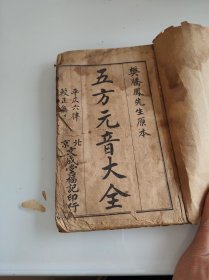 樊騰鳳先生原本
五方元音大全
平仄六律
較正無
北京
成堂楊記印行